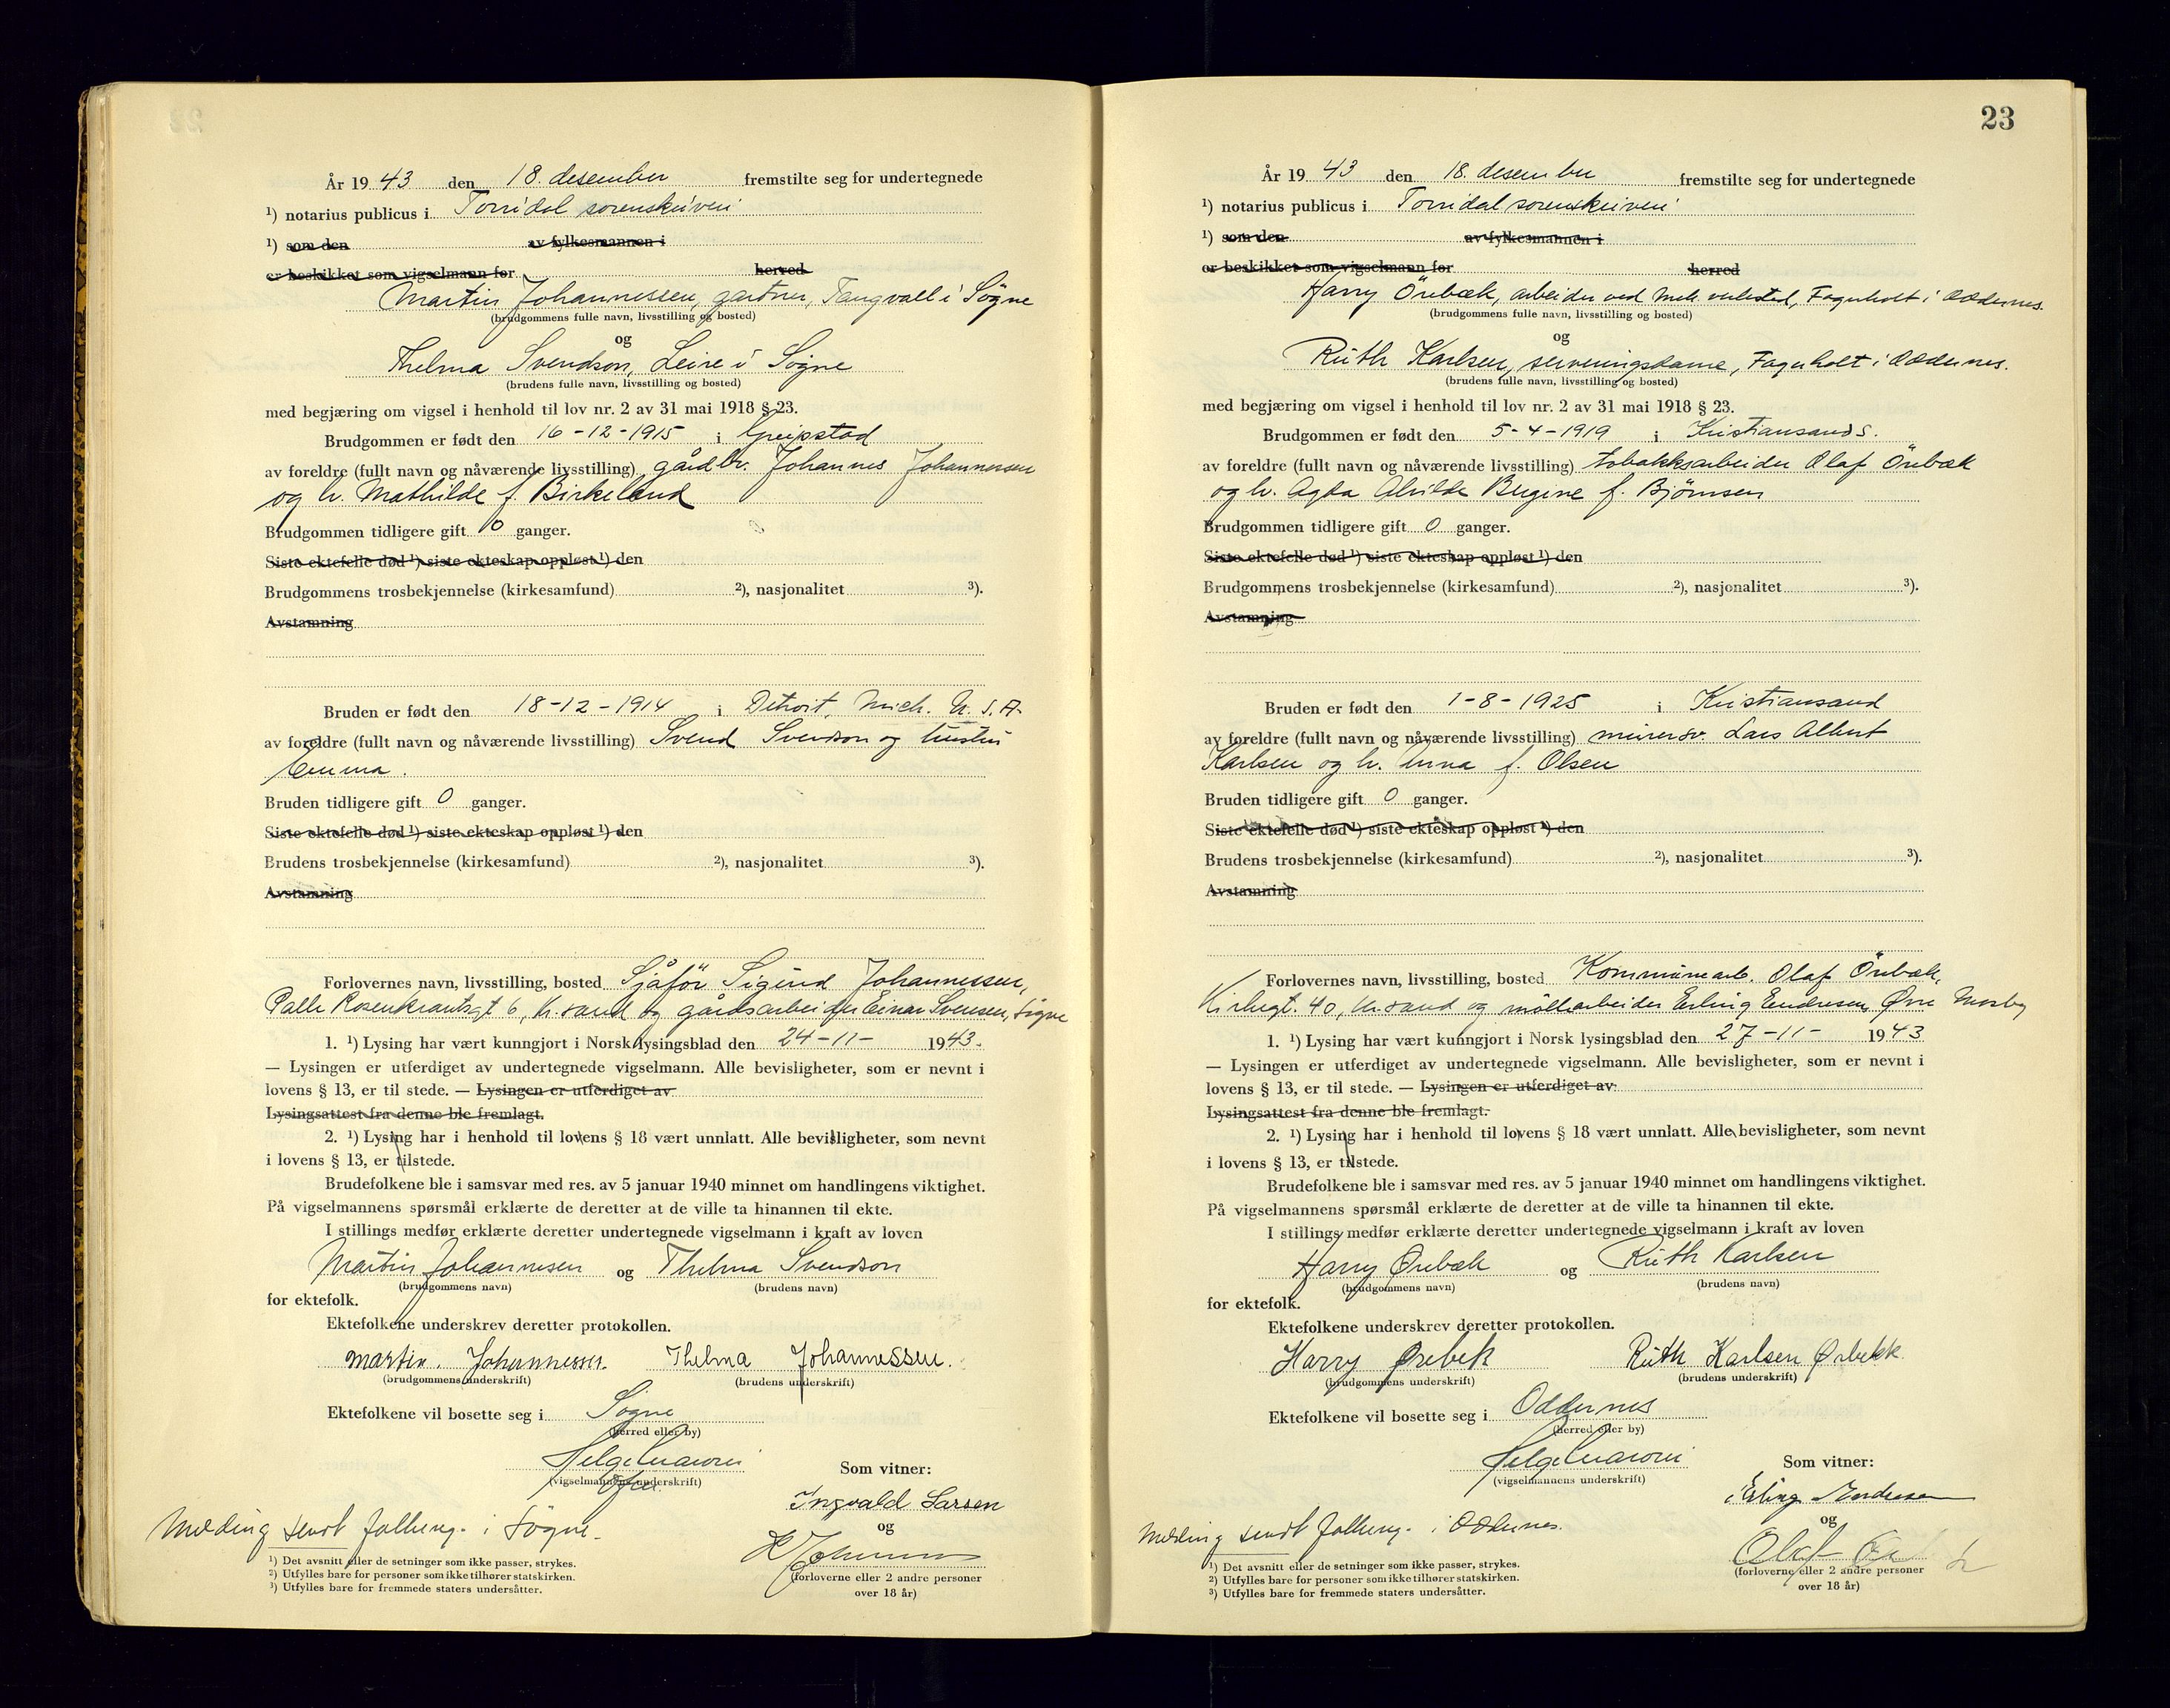 År 19 43 den 18. desember fremstilte seg for undertegnede
¹) notarius publicus i Torridal sorenskriveri
¹) som den av fylkesmannen i
er beskikket som vigselmann for herred
Martin Johannessen, gartner, Tangvall i Søgne
(brudgommens fulle navn, livsstilling og bosted)
og
Thelma Svendson, Leire i Søgne
(brudens fulle navn, livsstilling og bosted)
med begjæring om vigsel i henhold til lov nr. 2 av 31 mai 1918 § 23.
Brudgommen er født den 16-12-1915 i Greipstad
av foreldre (fullt navn og nåværende livsstilling) gårdbr. Johannes Johannessen
og h. Mathilde f. Birkeland
Brudgommen tidligere gift 0 ganger.
Siste ektefelle død ¹) siste ekteskap oppløst ¹) den
Brudgommens trosbekjennelse (kirkesamfund) ²), nasjonalitet ³).
Avstamning
Bruden er født den 18-12-1914 i Detroit, Mich. U.S.A.
av foreldre (fullt navn og nåværende livsstilling) Svend Svendson og hustru
Emma.
Bruden tidligere gift 0 ganger.
Siste ektefelle død ¹) siste ekteskap oppløst ¹) den
Brudens trosbekjennelse (kirkesamfund) ²), nasjonalitet ³).
Avstamning
Forlovernes navn, livsstilling, bosted Sjåför Sigurd Johannessen,
Palle Rosenkrantzgt 6, Kr.sand og gårdsarbeider Einar Svensen, Søgne
1. ¹) Lysing har vært kunngjort i Norsk lysingsblad den 24-11- 1943.
— Lysingen er utferdiget av undertegnede vigselmann. Alle bevisligheter, som er nevnt i
lovens § 13, er til stede. — Lysingen er utferdiget av
Lysingsattest fra denne ble fremlagt.
2. ¹) Lysing har i henhold til lovens § 18 vært unnlatt. Alle bevisligheter, som nevnt
i lovens § 13, er tilstede.
Brudefolkene ble i samsvar med res. av 5 januar 1940 minnet om handlingens viktighet.
På vigselmannens spørsmål erklærte de deretter at de ville ta hinannen til ekte.
I stillings medfør erklærte deretter undertegnede vigselmann i kraft av loven
Martin Johannesen og Thelma Svendson
(brudgommens navn) (brudens navn)
for ektefolk.
Ektefolkene underskrev deretter protokollen.
Martin. Johannessen. Thelma Johannessen.
(brudgommens underskrift) (brudens underskrift)
Ektefolkene vil bosette seg i Søgne
(herred eller by)
(vigselmannens underskrift) Som vitner:
Ingvald Larsen
Melding sendt folkereg. i Søgne. og
¹) Det avsnitt eller de setninger som ikke passer, strykes.
²) Utfylles bare for personer som ikke tilhører statskirken.
³) Utfylles bare for fremmede staters undersåtter.
(forloverne eller 2 andre personer
over 18 år)
23
År 19 43 den 18. desember fremstilte seg for undertegnede
¹) notarius publicus i Torridal sorenskriveri
¹) som den av fylkesmannen i
er beskikket som vigselmann for herred
Harry Örebæk, arbeider ved mek. verksted, Fagerholt i Oddernes.
(brudgommens fulle navn, livsstilling og bosted)
og
Ruth Karlsen, serveringsdame, Fagerholt i Oddernes.
(brudens fulle navn, livsstilling og bosted)
med begjæring om vigsel i henhold til lov nr. 2 av 31 mai 1918 § 23.
Brudgommen er født den 5-4-1919 i Kristiansand S.
av foreldre (fullt navn og nåværende livsstilling) tobakksarbeider Olaf Örebæk
og h. Agda Alvilde Bergine f. Bjørnsen
Brudgommen tidligere gift 0 ganger.
Siste ektefelle død ¹) siste ekteskap oppløst ¹) den
Brudgommens trosbekjennelse (kirkesamfund) ²), nasjonalitet ³).
Avstamning
Bruden er født den 1-8-1925 i Kristiansand
av foreldre (fullt navn og nåværende livsstilling) murersv. Lars Albert
Karlsen og h. Anna f. Olsen
Bruden tidligere gift 0 ganger.
Siste ektefelle død ¹) siste ekteskap oppløst ¹) den
Brudens trosbekjennelse (kirkesamfund) ²), nasjonalitet ³).
Avstamning
Forlovernes navn, livsstilling, bosted Kommunearb. Olaf Örebæk,
Kirkegt. 40, Kr.sand og møllearbeider Erling Endresen, Øvre Mosby
1. ¹) Lysing har vært kunngjort i Norsk lysingsblad den 27-11- 1943
— Lysingen er utferdiget av undertegnede vigselmann. Alle bevisligheter, som er nevnt i
lovens § 13, er til stede. — Lysingen er utferdiget av
Lysingsattest fra denne ble fremlagt.
2. ¹) Lysing har i henhold til lovens § 18 vært unnlatt. Alle bevisligheter, som nevnt
i lovens § 13, er tilstede.
Brudefolkene ble i samsvar med res. av 5 januar 1940 minnet om handlingens viktighet.
På vigselmannens spørsmål erklærte de deretter at de ville ta hinannen til ekte.
I stillings medfør erklærte deretter undertegnede vigselmann i kraft av loven
Harry Ørebæk og Ruth Karlsen
(brudgommens navn) (brudens navn)
for ektefolk.
Ektefolkene underskrev deretter protokollen.
Harry Ørebek Ruth Karlsen Ørbekk.
(brudgommens underskrift) (brudens underskrift)
Ektefolkene vil bosette seg i Oddernes
(herred eller by)
(vigselmannens underskrift) Som vitner:
Erling Endresen
Melding sendt folkereg. i Oddernes. og
Olaf
¹) Det avsnitt eller de setninger som ikke passer, strykes.
²) Utfylles bare for personer som ikke tilhører statskirken.
³) Utfylles bare for fremmede staters undersåtter.
(forloverne eller 2 andre personer
over 18 år)